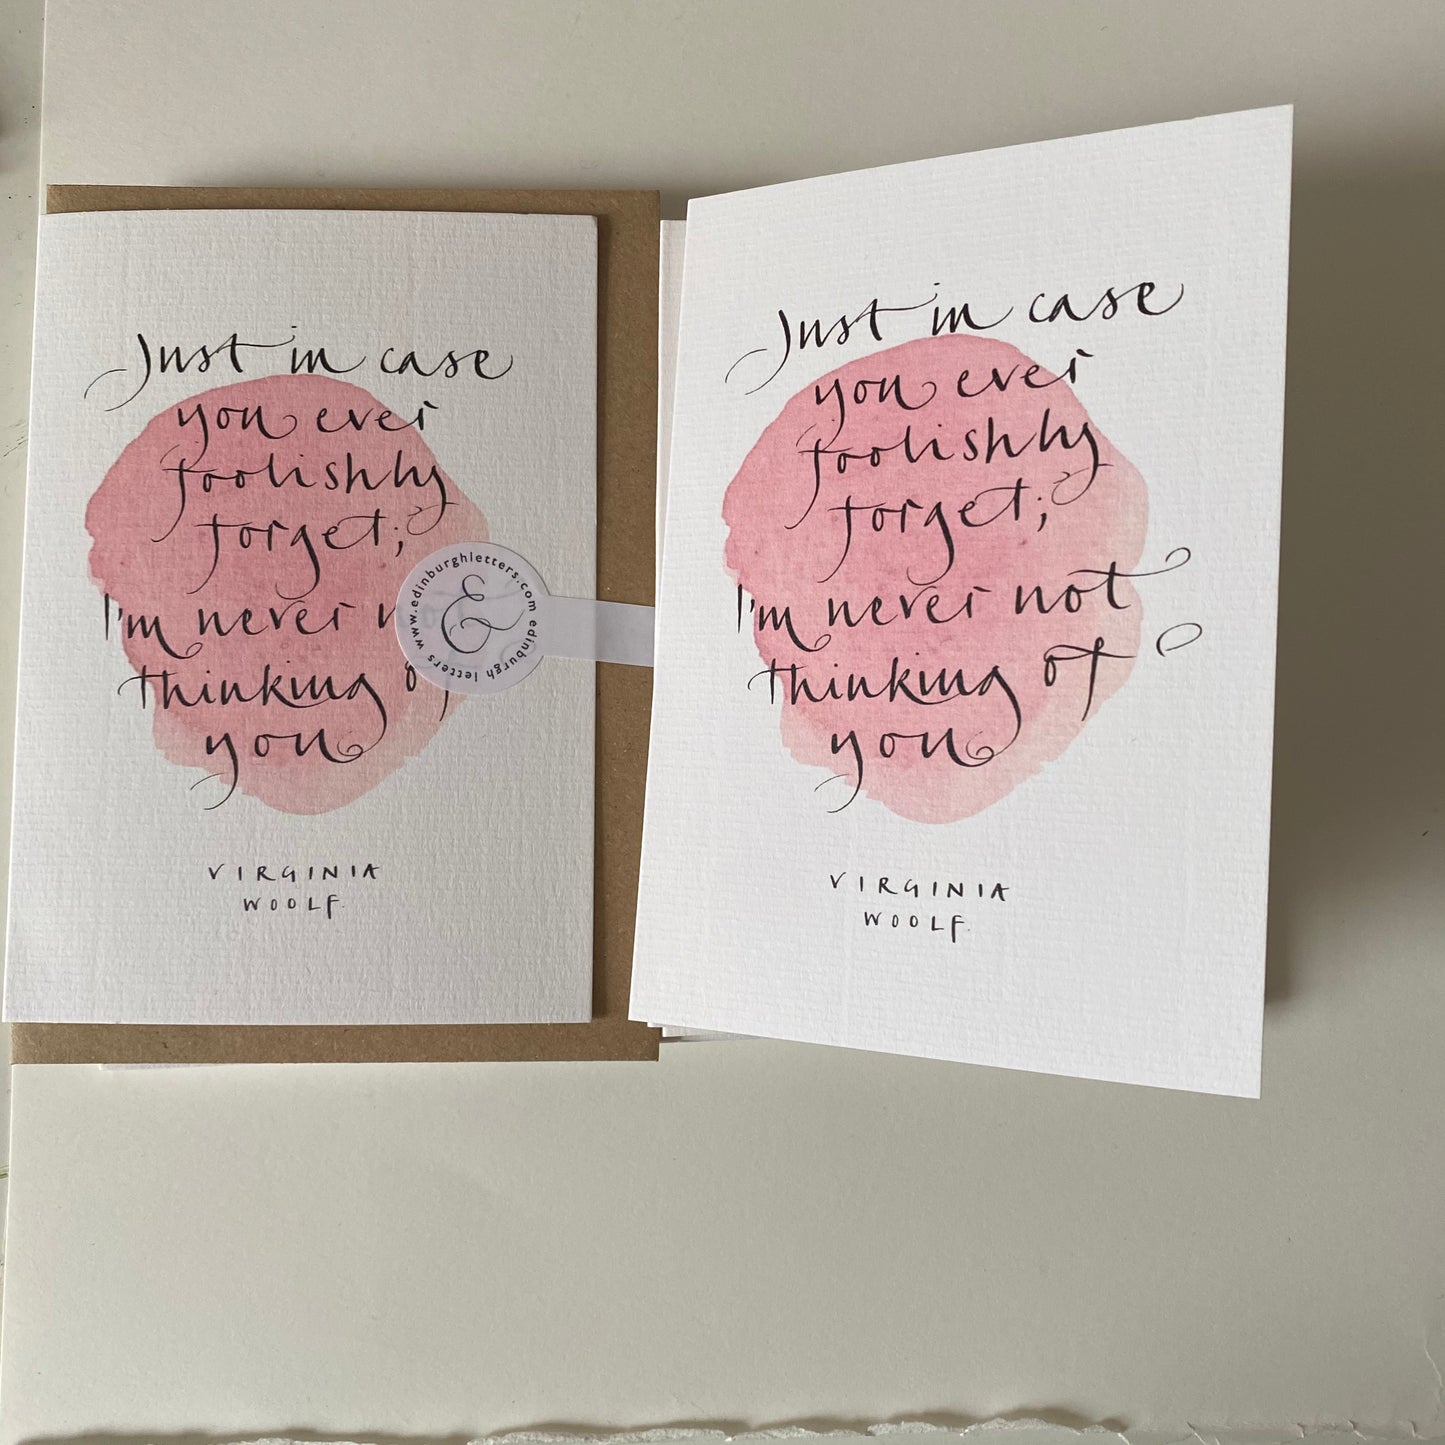 Just in case
you ever
foolishly
forget;
I'm never n
thinking o
you
VIRGINIA
WOOLF.
www.edinburghletters.com edinburgh letters
&
Just in case
you ever
foolishly
forget;
I'm never not
thinking of
you
VIRGINIA
WOOLF.